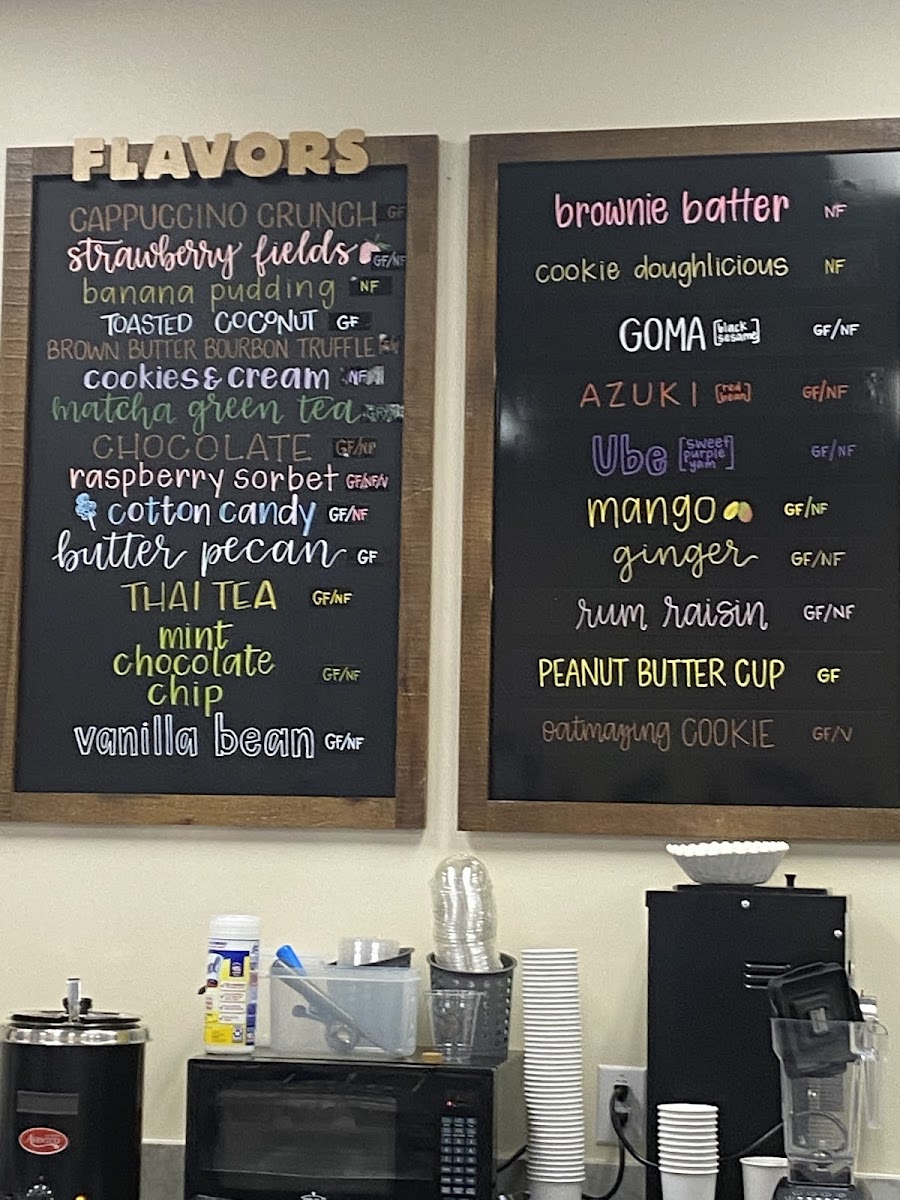 FLAVORS
CAPPUCCINO CRUNCH GF
strawberry fields GF/NF
banana pudding NF
TOASTED COCONUT GF
BROWN BUTTER BOURBON TRUFFLE
cookies & cream NF
matcha green tea
CHOCOLATE GF/NF
raspberry sorbet GF/NF/V
cotton candy GF/NF
butter pecan GF
THAI TEA GF/NF
mint
chocolate
chip GF/NF
vanilla bean GF/NF
brownie batter NF
cookie doughlicious NF
GOMA [black sesame] GF/NF
AZUKI [red bean] GF/NF
Ube [sweet purple yam] GF/NF
mango GF/NF
ginger GF/NF
rum raisin GF/NF
PEANUT BUTTER CUP GF
oatmaying COOKIE GF/V